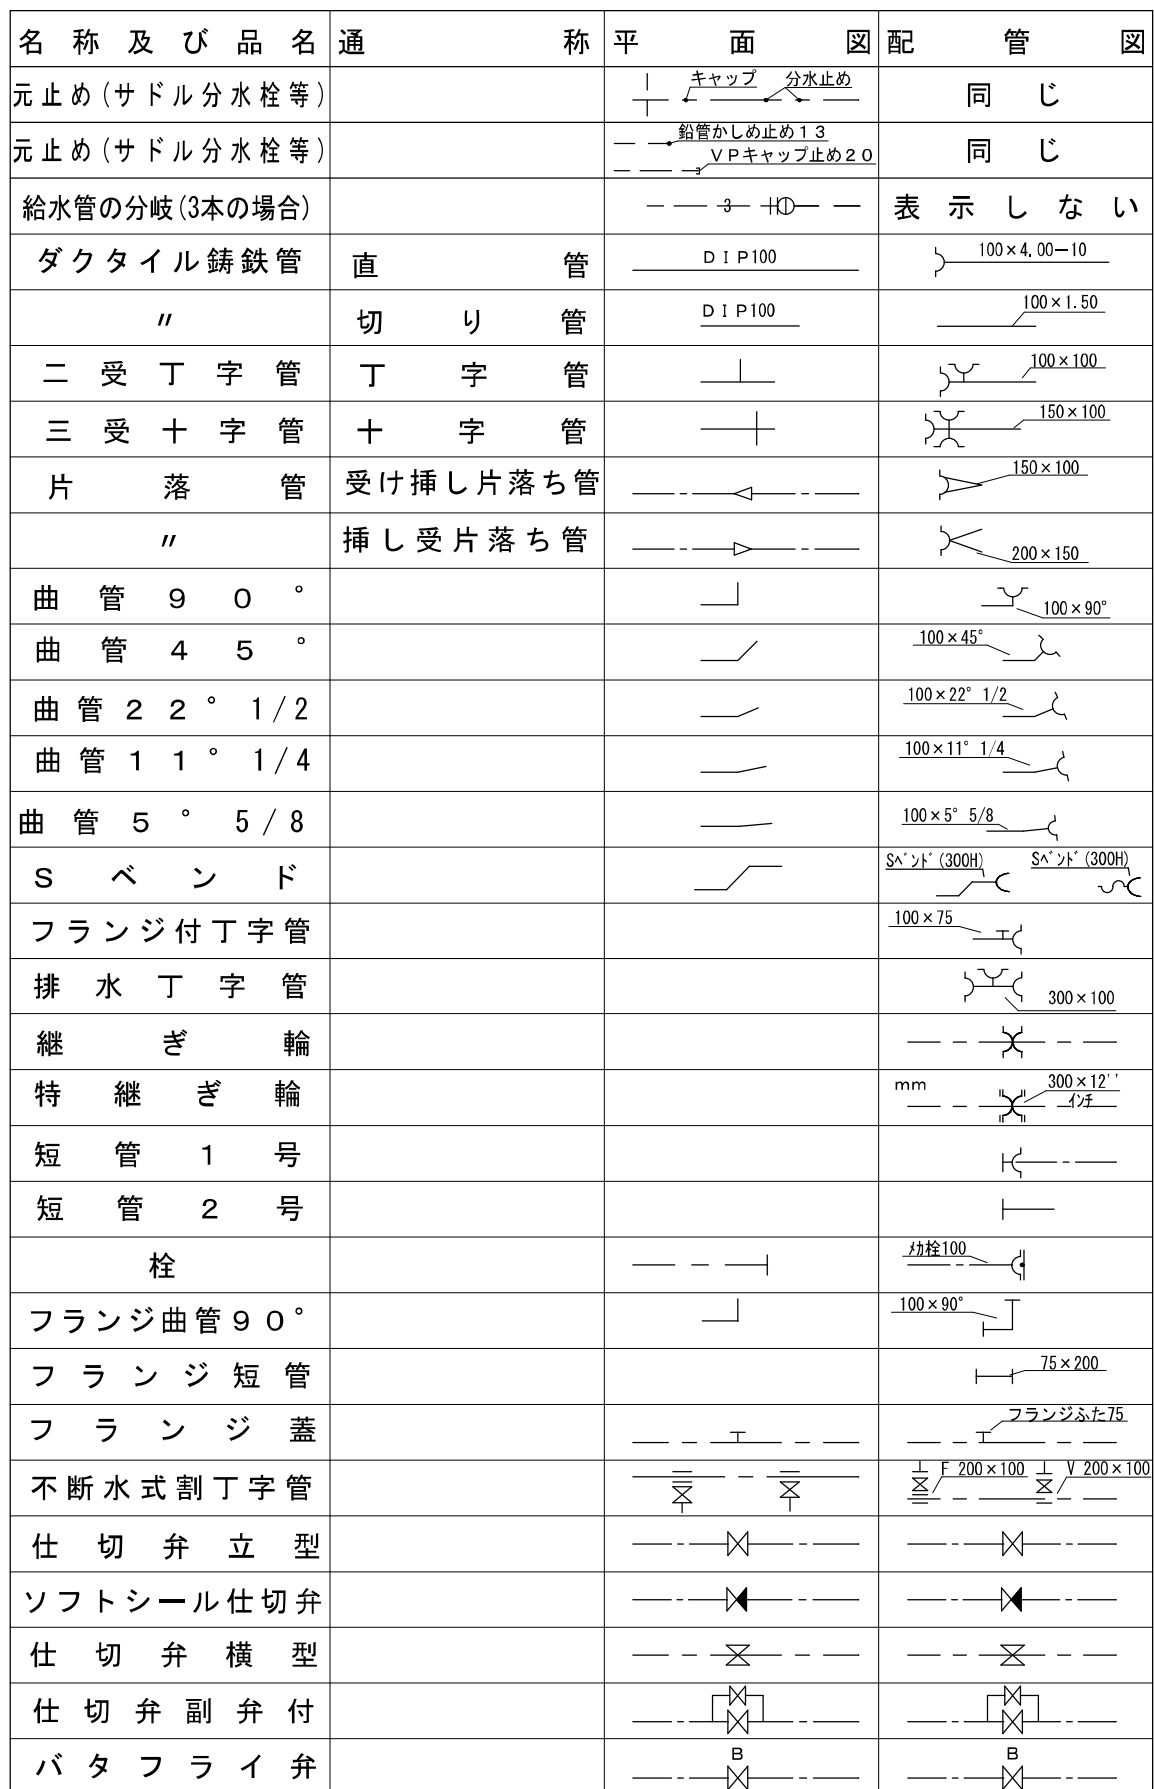 名称及び品名 通称 平面図 配管図
元止め(サドル分水栓等) キャップ 分水止め 同じ
元止め(サドル分水栓等) 鉛管かしめ止め13 同じ
VPキャップ止め20
給水管の分岐(3本の場合) 3 表示しない
ダクタイル鋳鉄管 直管 DIP100 100×4.00−10
〃 切り管 DIP100 100×1.50
二受丁字管 丁字管 100×100
三受十字管 十字管 150×100
片落管 受け挿し片落ち管 150×100
〃 挿し受片落ち管 200×150
曲管90° 100×90°
曲管45° 100×45°
曲管22°1/2 100×22° 1/2
曲管11°1/4 100×11° 1/4
曲管5°5/8 100×5° 5/8
Sベンド Sベンド(300H) Sベンド(300H)
フランジ付丁字管 100×75
排水丁字管 300×100
継ぎ輪
特継ぎ輪 mm 300×12''
インチ
短管1号
短管2号
栓 メカ栓100
フランジ曲管90° 100×90°
フランジ短管 75×200
フランジ蓋 フランジふた75
不断水式割丁字管 F 200×100 V 200×100
仕切弁立型
ソフトシール仕切弁
仕切弁横型
仕切弁副弁付
バタフライ弁 B B